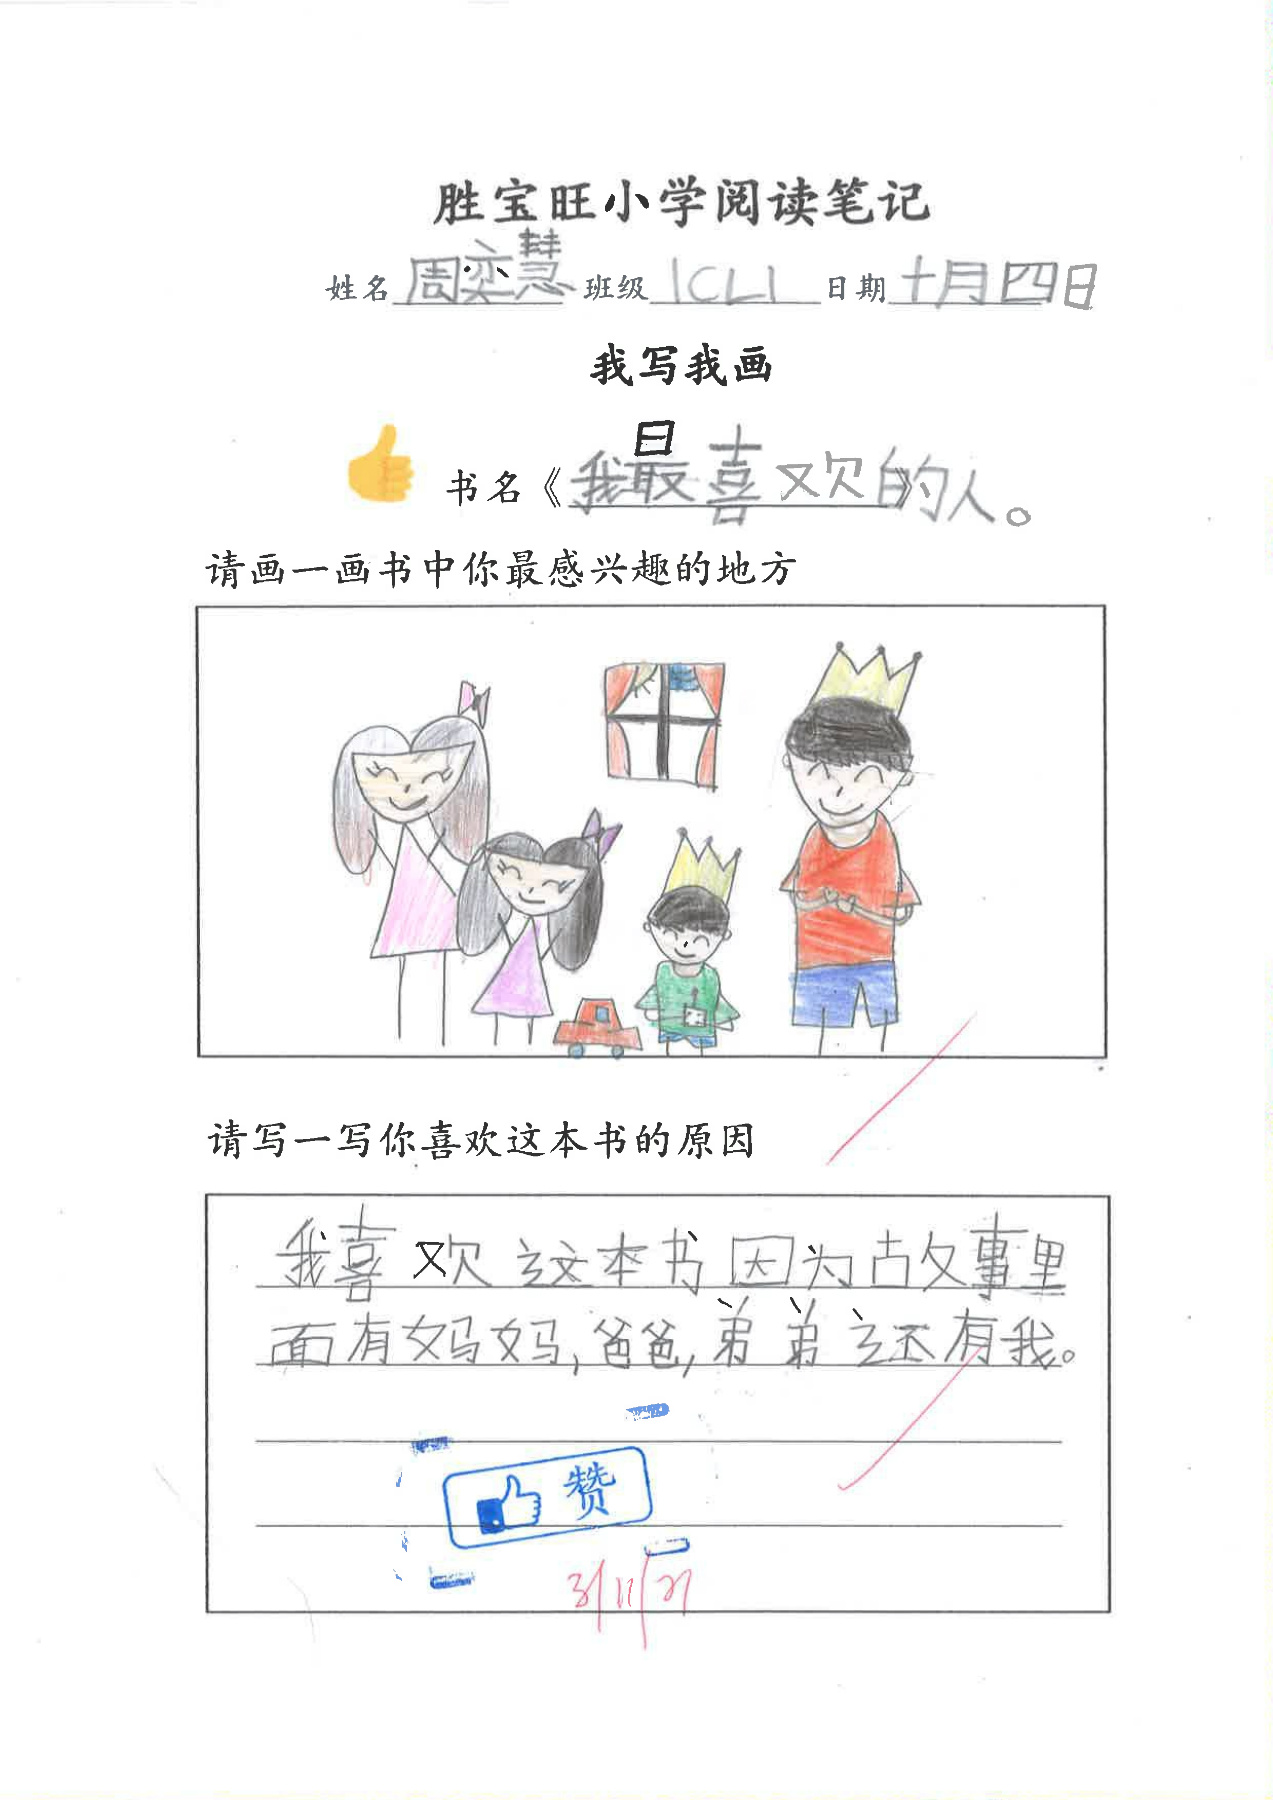 胜宝旺小学阅读笔记
姓名 周奕慧 班级 1CL1 日期 十月四日
我写我画
书名《我最喜欢的人。》
请画一画书中你最感兴趣的地方
请写一写你喜欢这本书的原因
我喜欢这本书因为故事里
面有妈妈,爸爸,弟弟还有我。
赞
3/11/21